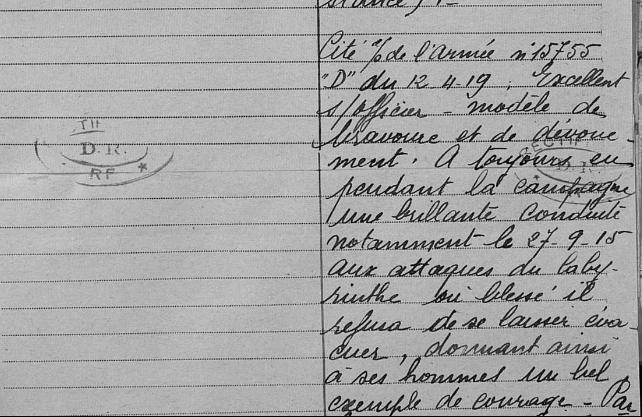 Cité %de l'Armée n°15755
"D" du 12.4.19. Excellent
s/officier - modèle de
bravoure et de dévoue-
ment. A toujours eu
pendant la campagne
une brillante conduite
notamment le 27-9-15
aux attaques du laby-
rinthe où blessé il
refusa de se laisser éva-
cuer, donnant ainsi
à ses hommes un bel
exemple de courage - Par
D.R.
RF *